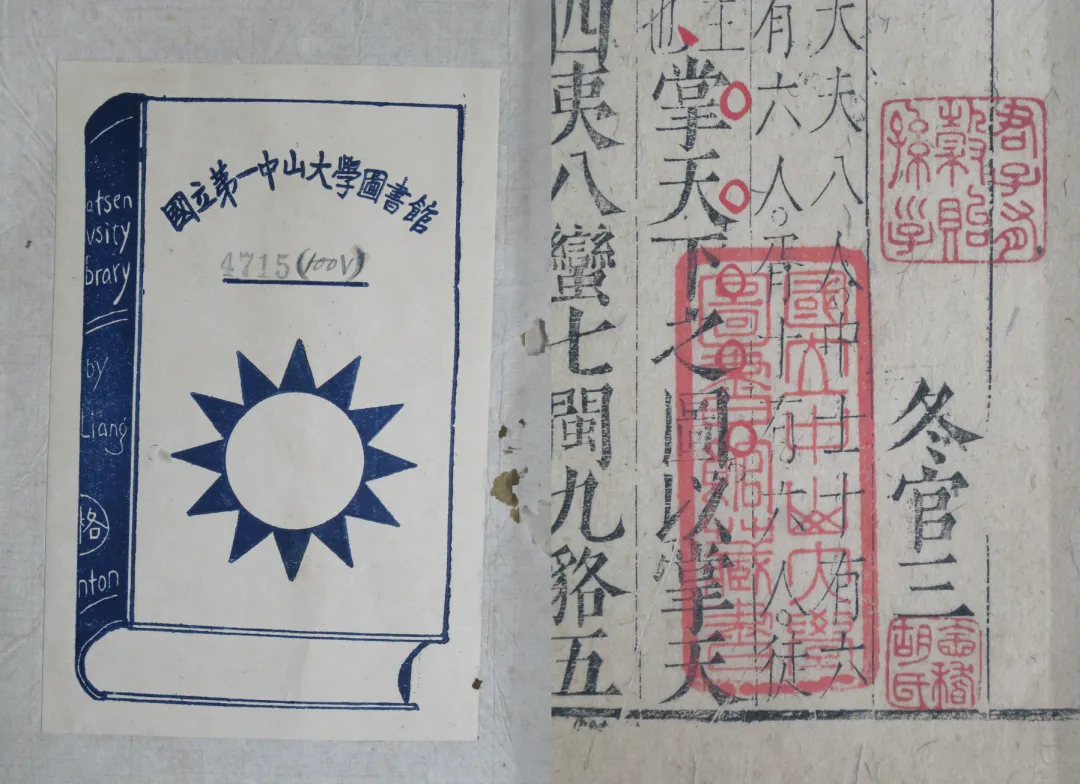 國立第一中山大學圖書館
4715(100V)
atsen
vsity
brary
by
Liang
格
nton
君子有
穀貽
孫子
冬官三
會稽
胡氏
大夫八人中士十有六
有六人。胥十有六人。徒
國立中山大學
掌天下之圖以掌天
四夷八蠻七閩九貉五